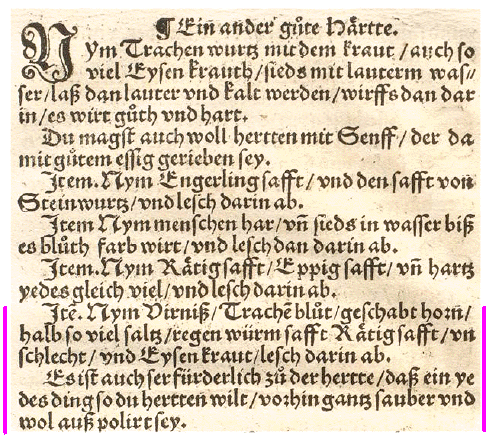 ¶ Ein ander gůte Hårtte.
NYm Trachen wurtz mit dem kraut / auch so
viel Eysen krauth / sieds mit lauterm was⸗
ser / laß dan lauter vnd kalt werden / wirffs dan dar
in / es wirt gůth vnd hart.
Du magst auch woll hertten mit Senff / der da
mit gůtem essig gerieben sey.
Item. Nym Engerling safft / vnd den safft von
Steinwurtz / vnd lesch darin ab.
Item Nym menschen har / vñ sieds in wasser biß
es blůth farb wirt / vnd lesch dan darin ab.
Item. Nym Råtig safft / Eppig safft / vñ hartz
yedes gleich viel / vnd lesch darin ab.
Itē. Nym Virniß / Trachē blůt / geschabt horn̄ /
halb so viel saltz / regen würm safft Råtig safft / vn
schlecht / vnd Eysen kraut / lesch darin ab.
Es ist auch ser fürderlich zů der hertte / daß ein ye
des ding so du hertten wilt / vorhin gantz sauber vnd
wol auß polirt sey.